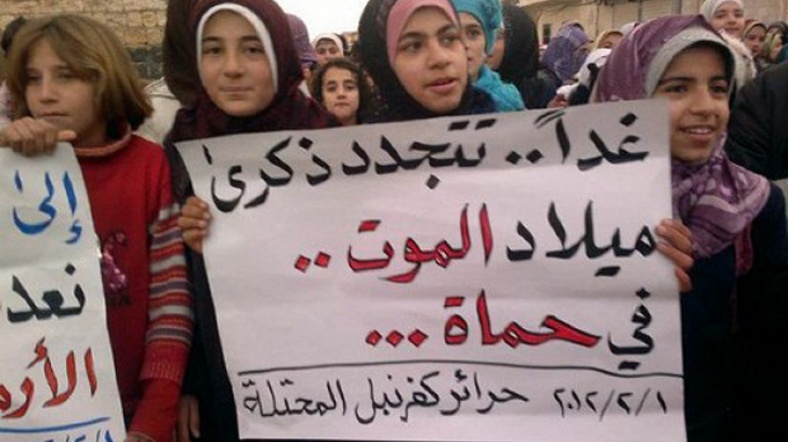 غداً.. تتجدد ذكرىٰ
ميلاد الموت..
في حماة...
٢٠١٢/٢/١ حرائر كفرنبل المحتلة
إلىٰ